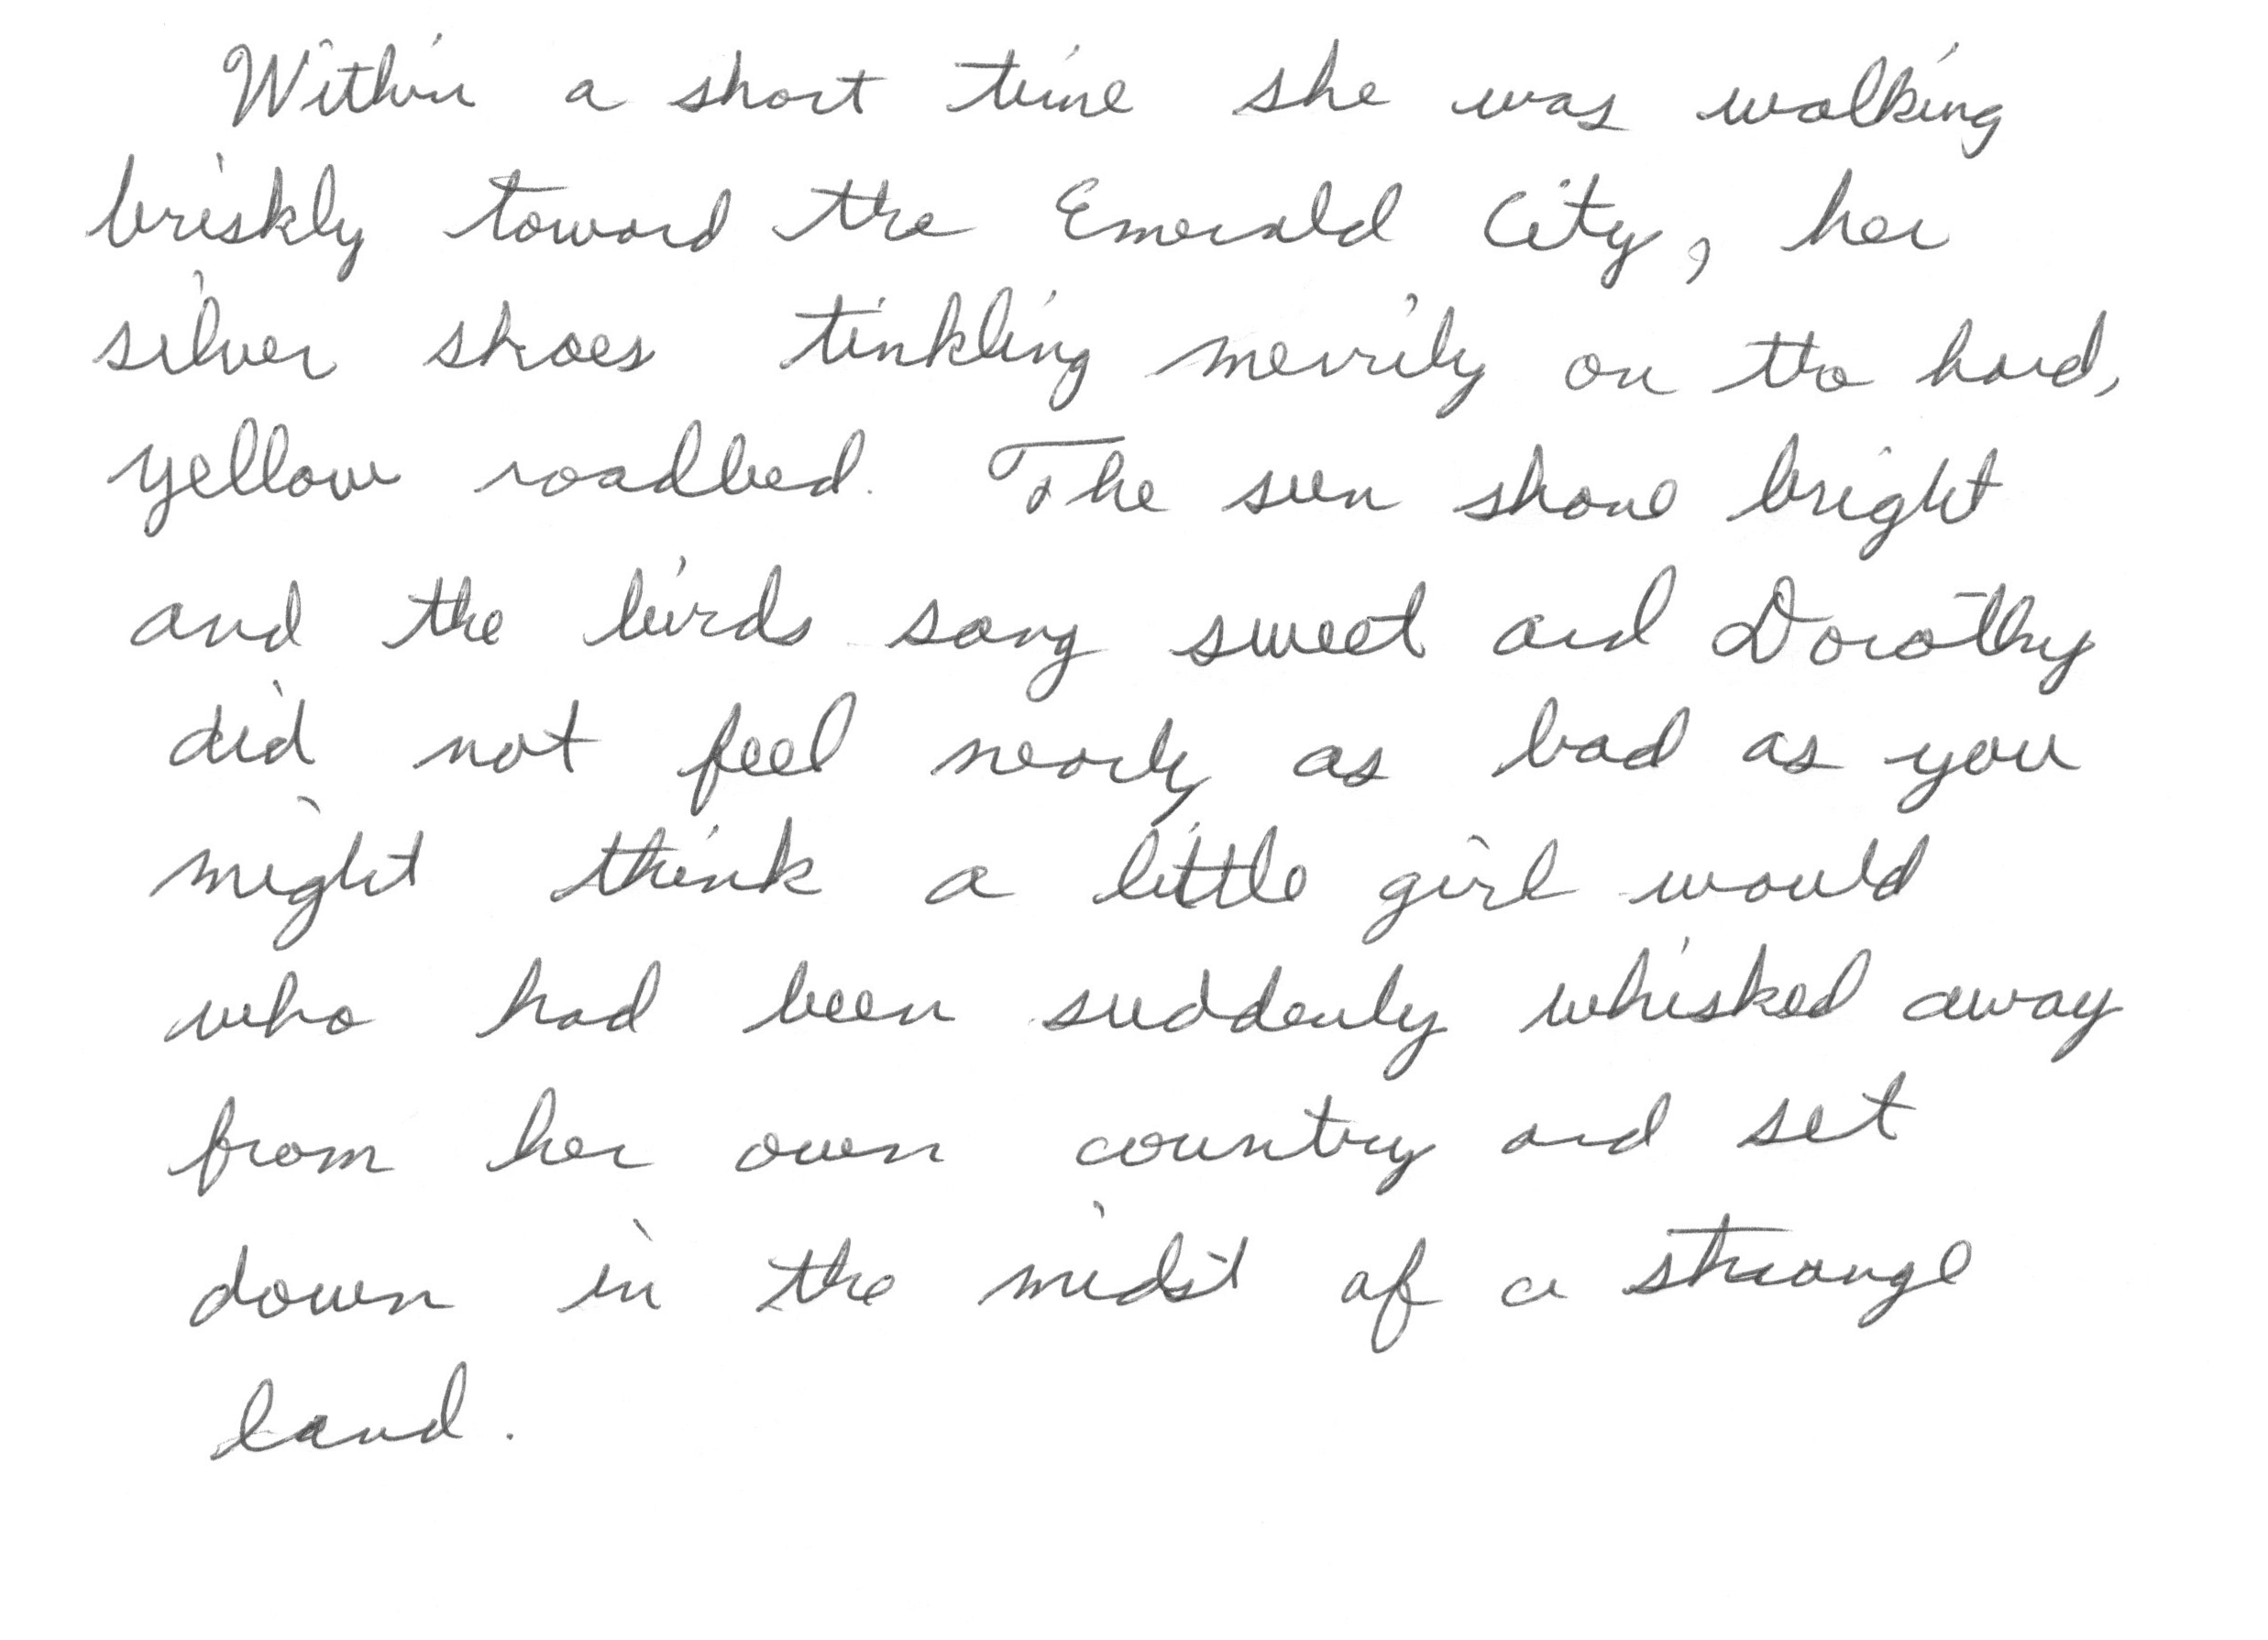 Within a short time she was walking
briskly toward the Emerald City, her
silver shoes tinkling merrily on the hard,
yellow roadbed. The sun shone bright
and the birds sang sweet and Dorothy
did not feel nearly as bad as you
might think a little girl would
who had been suddenly whisked away
from her own country and set
down in the midst of a strange
land.